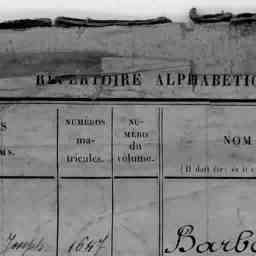 RÉPERTOIRE ALPHABÉTIQ
S
MS.
NUMÉROS
ma-
tricules.
NU-
MÉRO
du
volume.
NOM
(Il doit être
Joseph 1647 Barb